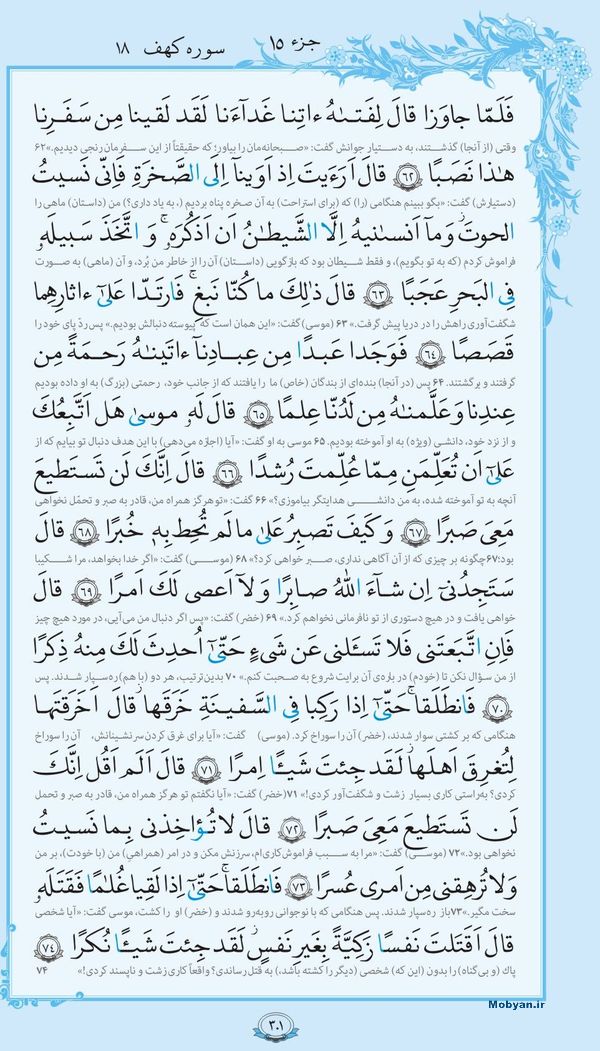 جزء ۱۵ سوره کهف ۱۸
فَلَمّا جاوَزا قالَ لِفَتىٰهُ ءاتِنا غَدآءَنا لَقَد لَقينا مِن سَفَرِنا
وقتی (از آنجا) گذشتند، به دستیار جوانش گفت: «صبحانه‌مان را بیاور؛ که حقیقتاً از این سفرمان رنجی دیدیم.»۶۲
هٰذا نَصَبًا ﴿۶۲﴾ قالَ اَرَءَيتَ اِذ اَوَينآ اِلَى الصَّخرَةِ فَاِنّى نَسيتُ
(دستیارش) گفت: «بگو ببینم هنگامی (را) که (برای استراحت) به آن صخره پناه بردیم (، به یاد داری؟) من (داستان) ماهی را
الحوتَ وَمآ اَنسىٰنيهُ اِلَّا الشَّيطٰنُ اَن اَذكُرَهٗ ۚ وَاتَّخَذَ سَبيلَهٗ
فراموش کردم (که به تو بگویم)، و فقط شیطان بود که بازگویی (داستان) آن را از خاطر من بُرد، و آن (ماهی) به صورت
فِى البَحرِ عَجَبًا ﴿۶۳﴾ قالَ ذٰلِكَ ما كُنّا نَبغِ ۚ فَارتَدّا عَلىٰٓ ءاثارِهِما
شگفت‌آوری راهش را در دریا پیش گرفت.» ۶۳ (موسی) گفت: «این همان است که پیوسته دنبالش بودیم.» پس ردّ پای خود را
قَصَصًا ﴿۶۴﴾ فَوَجَدا عَبدًا مِن عِبادِنآ ءاتَينٰهُ رَحمَةً مِن
گرفتند و برگشتند. ۶۴ پس (در آنجا) بنده‌ای از بندگان (خاص) ما را یافتند که از جانب خود، رحمتی (بزرگ) به او داده بودیم
عِندِنا وَعَلَّمنٰهُ مِن لَدُنّا عِلمًا ﴿۶۵﴾ قالَ لَهٗ موسىٰ هَل اَتَّبِعُكَ
و از نزد خود، دانشی (ویژه) به او آموخته بودیم. ۶۵ موسی به او گفت: «آیا (اجازه می‌دهی) با این هدف دنبال تو بیایم که از
عَلىٰٓ اَن تُعَلِّمَنِ مِمّا عُلِّمتَ رُشدًا ﴿۶۶﴾ قالَ اِنَّكَ لَن تَستَطيعَ
آنچه به تو آموخته شده، به من دانشی هدایتگر بیاموزی؟» ۶۶ گفت: «تو هرگز همراه من، قادر به صبر و تحمّل نخواهی
مَعِىَ صَبرًا ﴿۶۷﴾ وَكَيفَ تَصبِرُ عَلىٰ ما لَم تُحِط بِهٖ خُبرًا ﴿۶۸﴾ قالَ
بود؛۶۷ چگونه بر چیزی که از آن آگاهی نداری، صبر خواهی کرد؟» ۶۸ (موسی) گفت: «اگر خدا بخواهد، مرا شکیبا
سَتَجِدُنىٓ اِن شآءَ اللّٰهُ صابِرًا وَلآ اَعصى لَكَ اَمرًا ﴿۶۹﴾ قالَ
خواهی یافت و در هیچ دستوری از تو نافرمانی نخواهم کرد.» ۶۹ (خضر) گفت: «پس اگر دنبال من می‌آیی، در مورد هیچ چیز
فَاِنِ اتَّبَعتَنى فَلا تَسـَٔلنى عَن شَىءٍ حَتّىٰٓ اُحدِثَ لَكَ مِنهُ ذِكرًا
از من سؤال نکن تا (خودم) در باره‌ی آن برایت شروع به صحبت کنم.» ۷۰ بدین‌ترتیب، هر دو (با هم) ره‌سپار شدند. پس
﴿۷۰﴾ فَانطَلَقا حَتّىٰٓ اِذا رَكِبا فِى السَّفينَةِ خَرَقَها ۖ قالَ اَخَرَقتَها
هنگامی که بر کشتی سوار شدند، (خضر) آن را سوراخ کرد. (موسی) گفت: «آیا برای غرق کردن سرنشینانش، آن را سوراخ
لِتُغرِقَ اَهلَها لَقَد جِئتَ شَيـًٔا اِمرًا ﴿۷۱﴾ قالَ اَلَم اَقُل اِنَّكَ
کردی؟ به‌راستی کاری بسیار زشت و شگفت‌آور کردی!» ۷۱ (خضر) گفت: «آیا نگفتم تو هرگز همراه من، قادر به صبر و تحمل
لَن تَستَطيعَ مَعِىَ صَبرًا ﴿۷۲﴾ قالَ لا تُؤاخِذنى بِما نَسيتُ
نخواهی بود.»۷۲ (موسی) گفت: «مرا به سبب فراموش‌کاری‌ام، سرزنش مکن و در امر (همراهیِ) من (با خودت)، بر من
وَلا تُرهِقنى مِن اَمرى عُسرًا ﴿۷۳﴾ فَانطَلَقا حَتّىٰٓ اِذا لَقِيا غُلٰمًا فَقَتَلَهٗ
سخت مگیر.»۷۳ باز ره‌سپار شدند. پس هنگامی که با نوجوانی روبه‌رو شدند و (خضر) او را کشت، موسی گفت: «آیا شخصی
قالَ اَقَتَلتَ نَفسًا زَكِيَّةً بِغَيرِ نَفسٍ لَقَد جِئتَ شَيـًٔا نُكرًا ﴿۷۴﴾
پاک (و بی‌گناه) را بدون (این که) شخصی (دیگر را کشته باشد)، به قتل رساندی؟ واقعاً کاری زشت و ناپسند کردی!» ۷۴
۳۰۱
Mobyan.ir